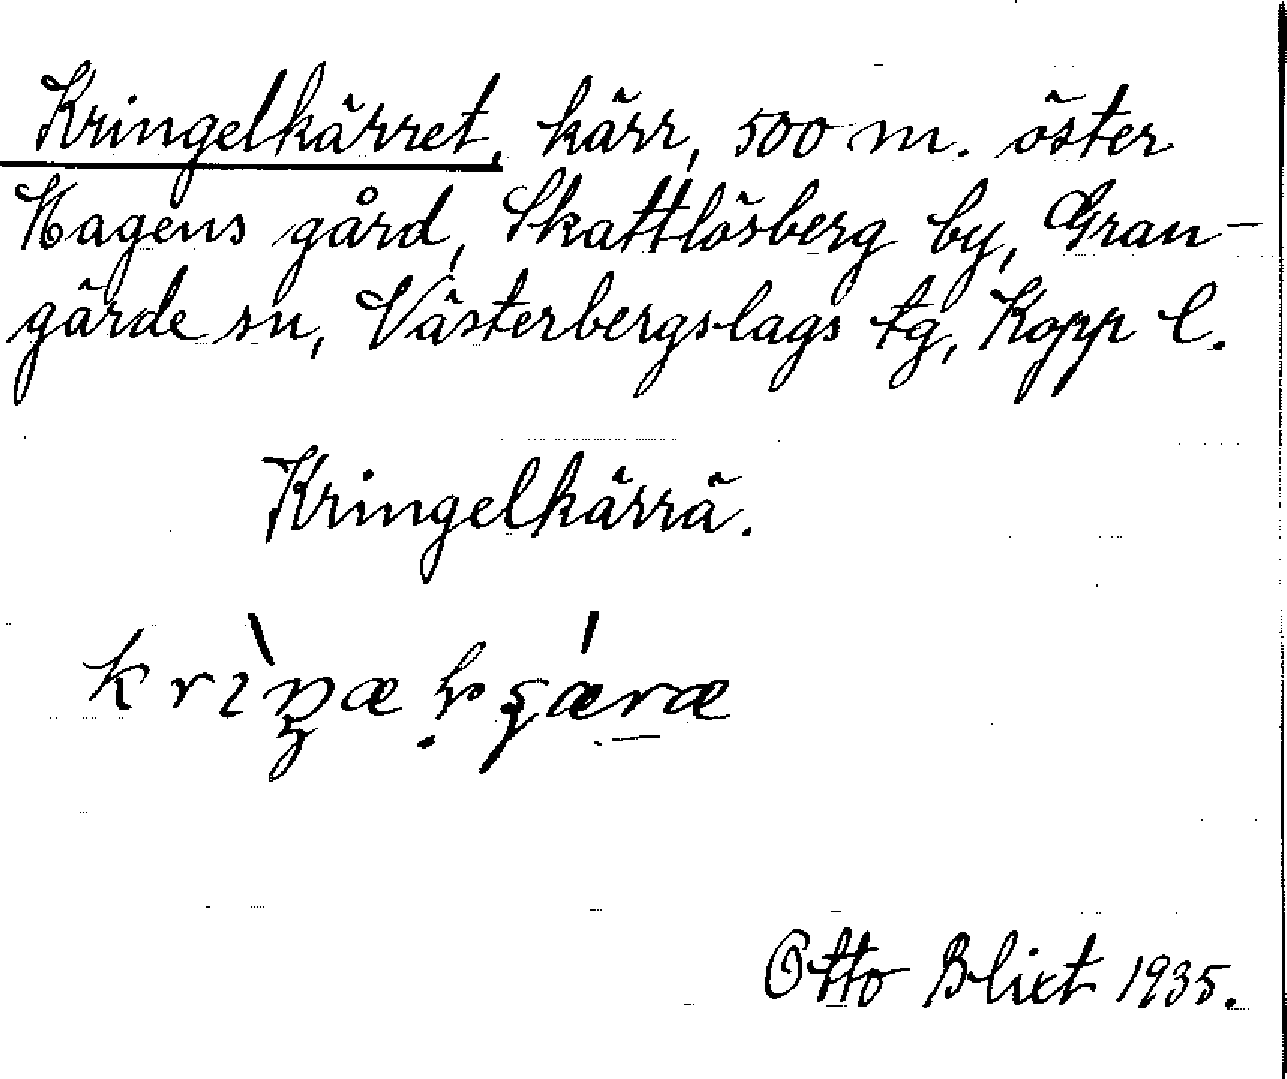 Kringelkärret, kärr, 500 m. öster
Hagens gård, Skattlösberg by, Gran-
gärde sn, Västerbergslags tg, Kopp l.
Kringelkärrä.
Otto Blixt 1935.